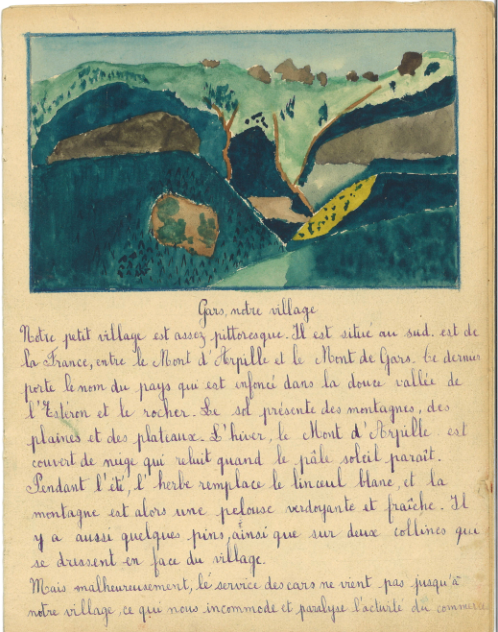 Gars, notre village
Notre petit village est assez pittoresque. Il est situé au sud. est de
la France, entre le Mont d'Arpille et le Mont de Gars. Ce dernier
porte le nom du pays qui est enfoncé dans la douce vallée de
l'Estéron et le rocher. Le sol présente des montagnes, des
plaines et des plateaux. L'hiver, le Mont d'Arpille est
couvert de neige qui reluit quand le pâle soleil paraît.
Pendant l'été, l'herbe remplace le linceul blanc, et la
montagne est alors une pelouse verdoyante et fraîche. Il
y a aussi quelques pins, ainsi que sur deux collines qui
se dressent en face du village.
Mais malheureusement, le service des cars ne vient pas jusqu'à
notre village, ce qui nous incommode et paralyse l'activité du commerce